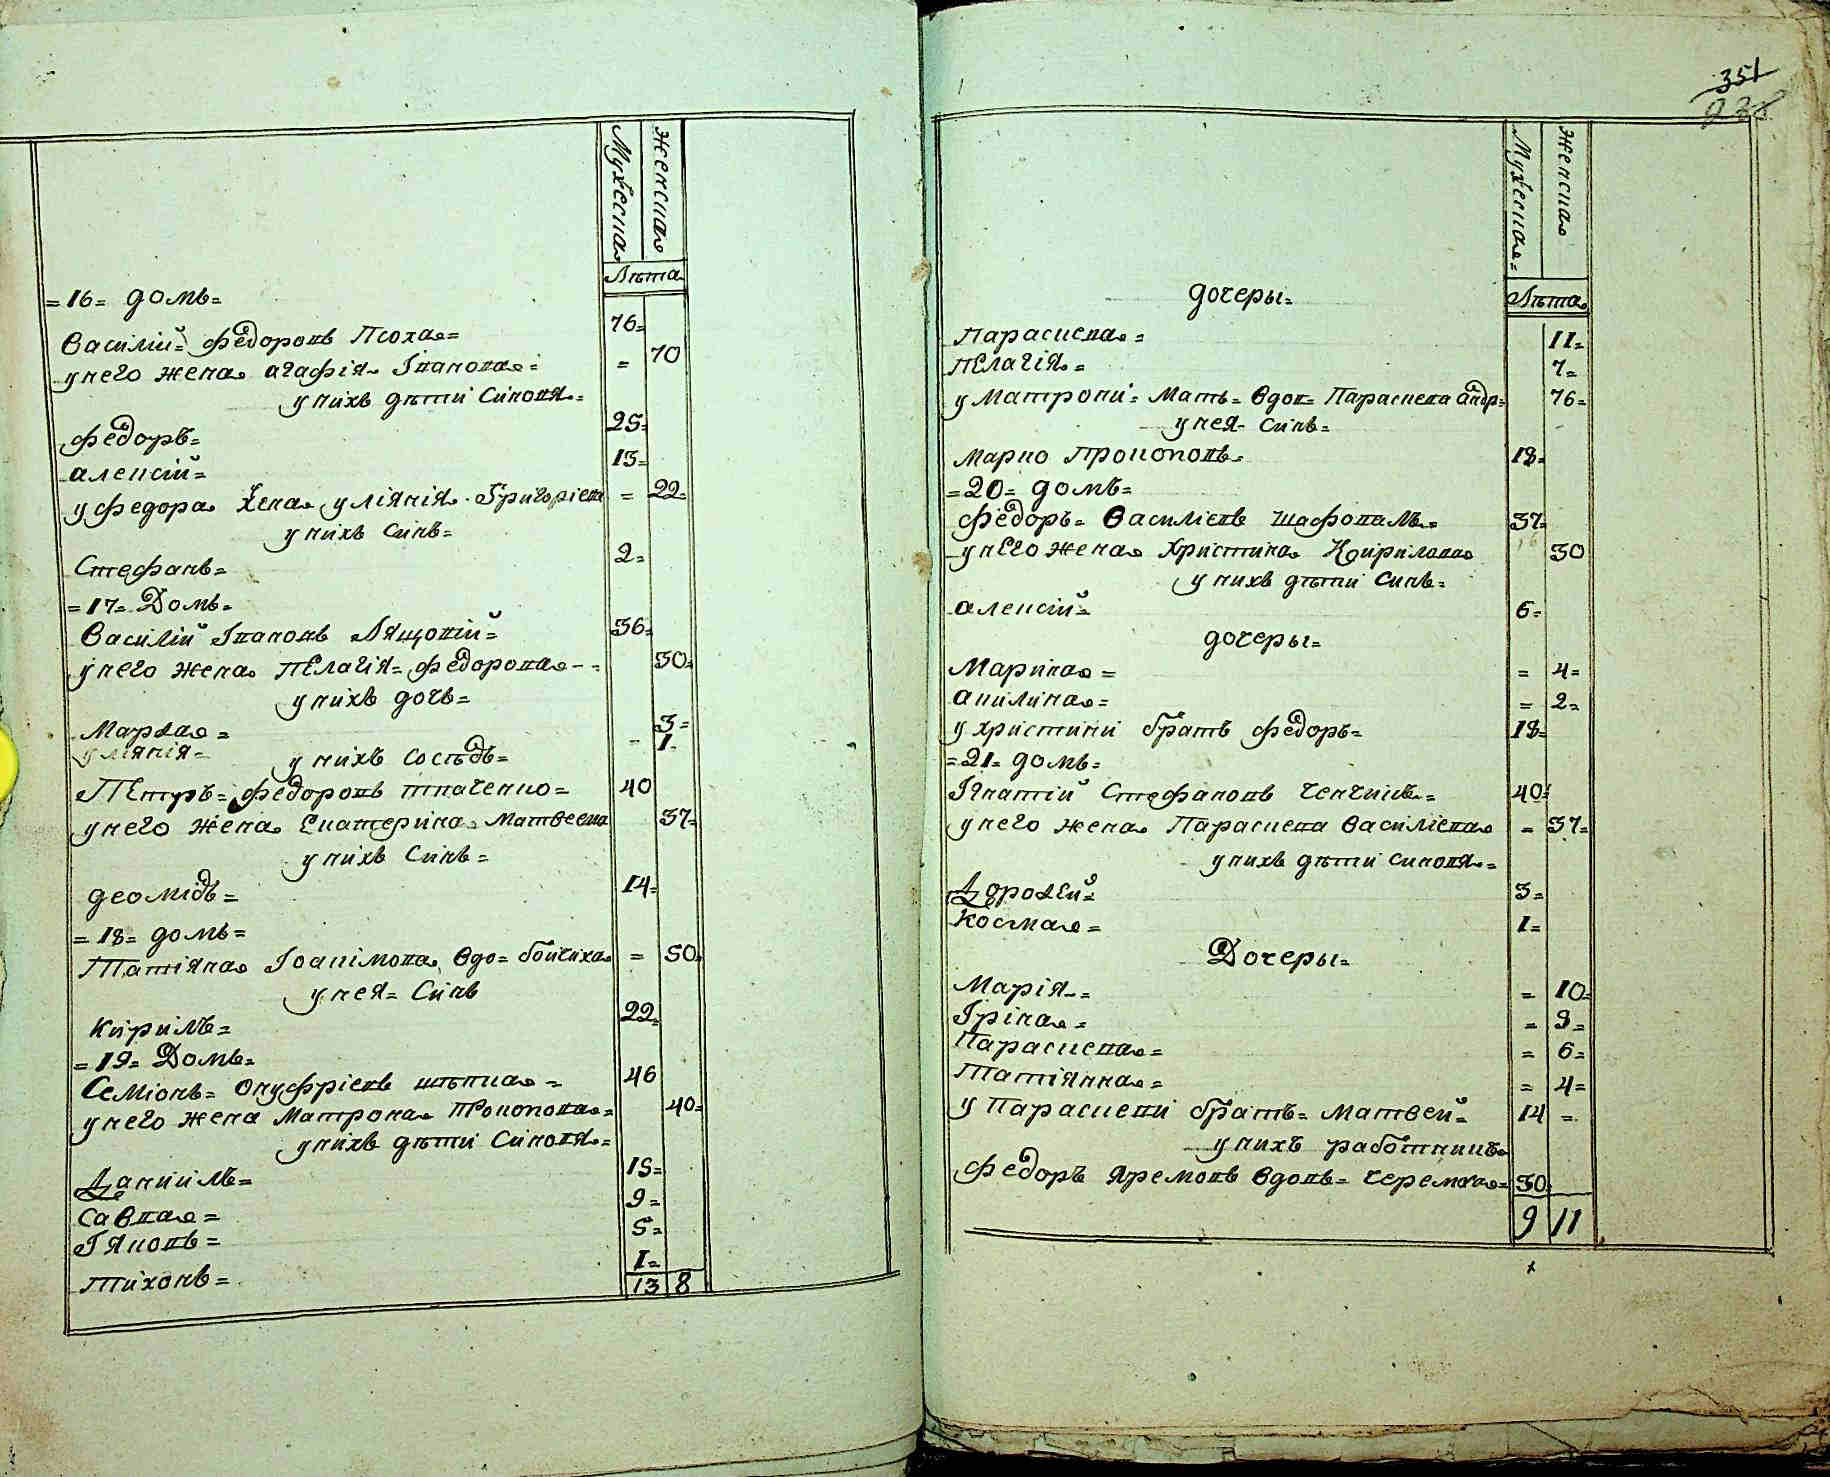 Мужеска Женска
Лѣта
=16= домъ=
Василій= Федоровъ Псоха= 76=
у него жена агафія Івановна= = 70
у нихъ дѣти Синовя=
Федоръ= 25=
алексій= 13=
у Федора Жена уліянія Григоріева = 22=
у нихъ Синъ=
Стефанъ= 2=
=17= Домъ=
Василій Івановъ Лящовій= 36=
у него жена пелагія= Федоровна= 30=
у нихъ дочь=
Марѳа= 3=
уліянія= - 1
у нихъ сосѣдъ=
Петръ= Федоровъ ткаченко= 40
у него жена Екатерина Матвеева 37=
у нихъ Синъ=
деомідъ= 14=
=18= домъ=
Татіяна Іоакімова вдо= бойчиха = 50
у нея= Синъ
Кирилъ= 22=
=19= Домъ=
Семіонъ= Онуфріевъ шпѣтка= 46
у него жена Матрона Прокопова= 40=
у нихъ дѣти Синовя=
Даніилъ= 15=
Савва= 9=
Іяковъ= 5=
Тихонъ= 1=
13 8
351
Мужеска= Женска
Лѣта
дочеры=
Параскева= 11=
пелагія= 7=
у Матрони= Мать= вдов= Параскева андр= 76=
у нея Синъ=
Марко Прокоповъ= 18=
=20= домъ=
Федоръ= Василіевъ шафовалъ= 37=
у него жена Христина Кирилова 30
у нихъ дѣти Синъ=
алексій= 6=
дочеры=
Марина= = 4=
акилина= = 2=
у христини братъ Федоръ= 18=
=21= домъ=
Ігнатій Стефановъ Чепчикъ= 40=
у него жена Параскева Василіева = 37=
у нихъ дѣти Синовя=
Дороѳей= 3=
Косма= 1=
Дочеры=
Марія= = 10=
Іріна= = 9=
Параскева= = 6=
Татіянна= = 4=
у Параскеви братъ= Матвей= 14 =
у нихъ работникъ
Федоръ Яремовъ вдовъ= черемха= 30
9 11